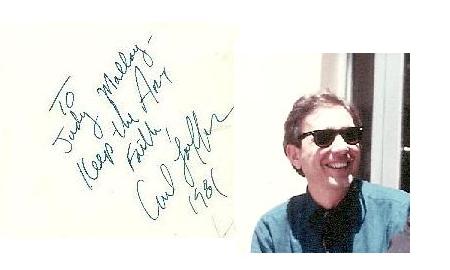 To
Judy Malloy-
Keep the Art
Faith,
Carl Loeffler
1981